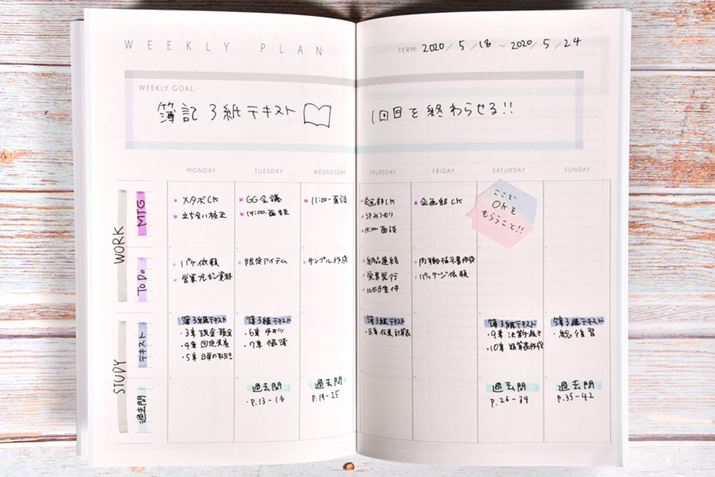 WEEKLY PLAN
TERM: 2020 / 5 / 18 ~ 2020 / 5 / 24
WEEKLY GOAL:
簿記3紙テキスト 1回目を終わらせる!!
MONDAY TUESDAY WEDNESDAY THURSDAY FRIDAY SATURDAY SUNDAY
WORK
MTG
・メタボCK
・立ち会い校正
・GG会議
・14:00-面談
・11:00-面談
・企画部CK
ここで
OKを
もらうこと!!
ToDo
・パケ依頼
・営業プレゼン資料
・限定アイテム
・サンプル作成
・納品連絡
・パッケージ依頼
STUDY
テキスト
簿3級テキスト
・3章 現金・預金
・4章 固定資産
・5章 日々の取引き
簿3級テキスト
・6章
・7章 帳簿
簿3級テキスト
・8章
簿3級テキスト
・9章 決算
・10章
簿3級テキスト
・総復習
過去問
過去問
・P.13-18
過去問
P.19-25
過去問
P.26-34
過去問
P.35-42